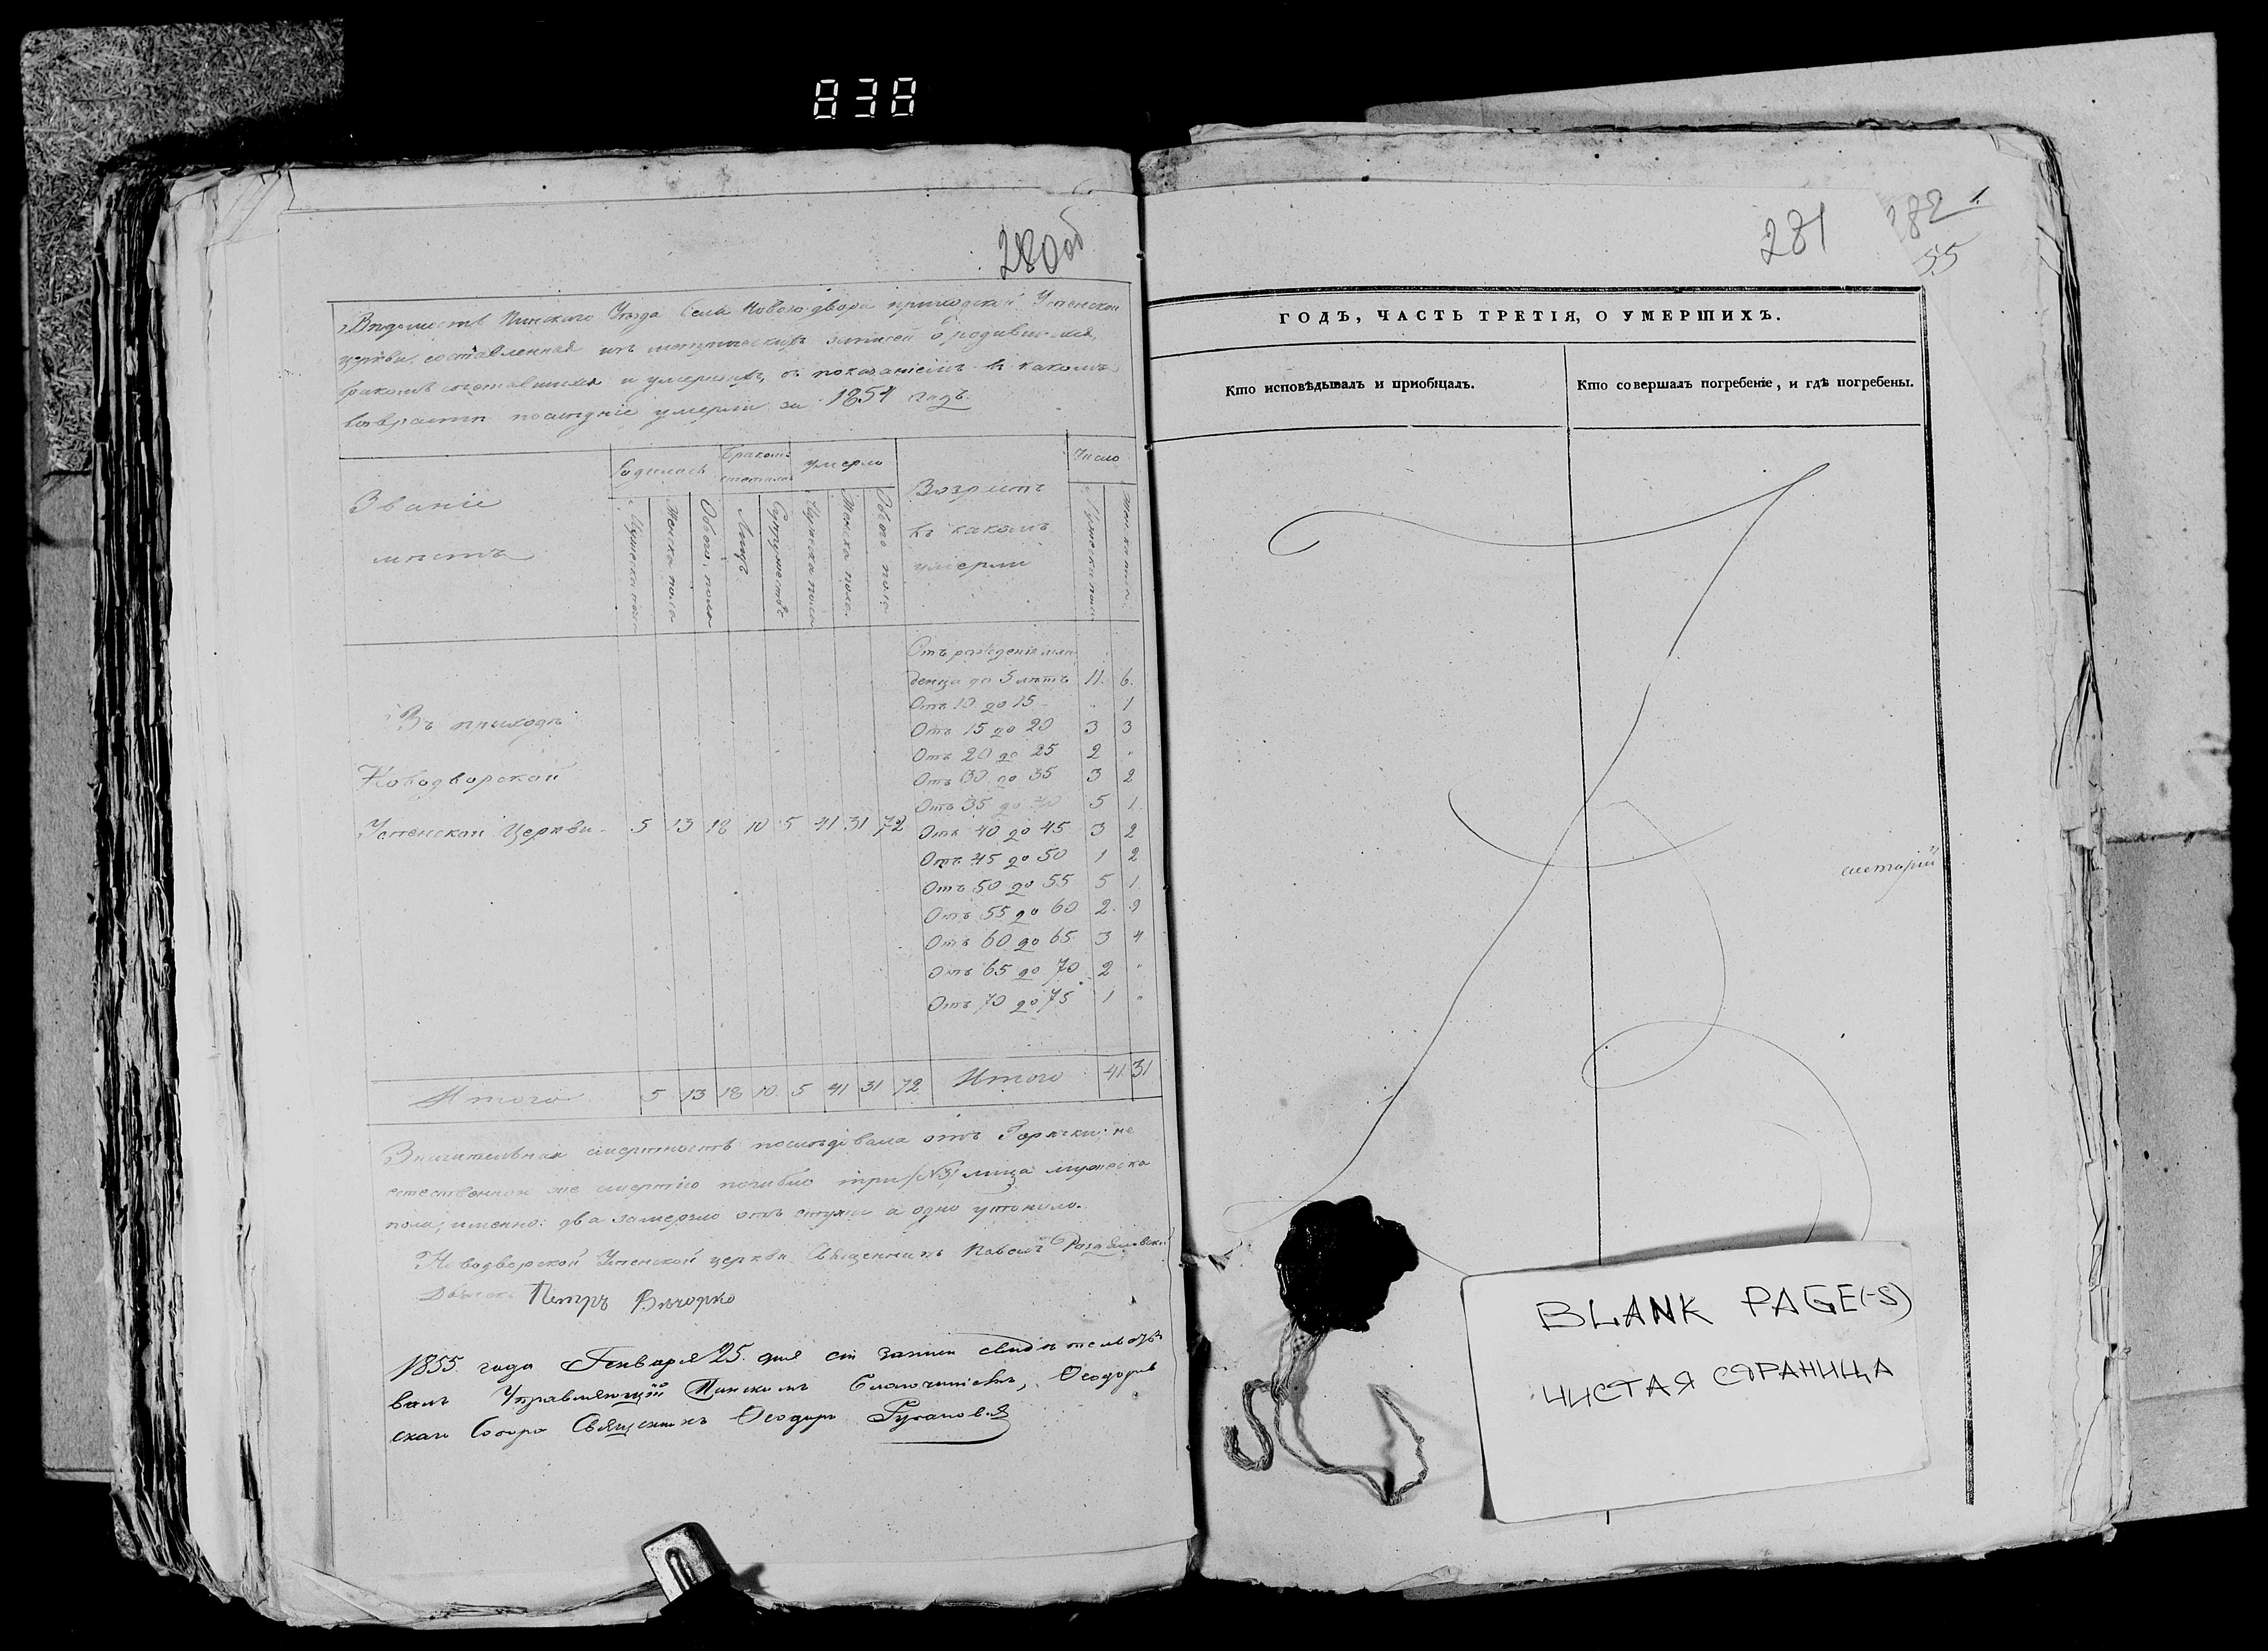 838
280об
Вѣдомость Пинскаго Уѣзда Села Новаго-двора приходской Успенской
церкви, составленная изъ метрическихъ записей о родившихся,
бракомъ сочетавшихся и умершихъ, съ показаніемъ въ какомъ
возрастѣ послѣдніе умерли за 1854 годъ.
Званіе мѣстъ
Родилось
Бракомъ сочеталось
умерло
Возрастъ въ какомъ умерли
Число
Мужеска пола
Женска пола
Обоего пола
Лицъ
Супружествъ
Мужеска пола
Женска пола
Обоего пола
Мужеска пола
Женска пола
Отъ рожденія мла
денца до 5 лѣтъ 11. 6.
Отъ 10 до 15 " 1
Въ приходѣ
Отъ 15 до 20 3 3
Отъ 20 до 25 2 "
Новодворской
Отъ 30 до 35 3 2
Отъ 35 до 40 5 1
Успенской Церкви 5 13 18 10 5 41 31 72 Отъ 40 до 45 3 2
Отъ 45 до 50 1 2
Отъ 50 до 55 5 1
Отъ 55 до 60 2. 9
Отъ 60 до 65 3 4
Отъ 65 до 70 2 "
Отъ 70 до 75 1 "
Итого 5 13 18 10 5 41 31 72 Итого 41 31
Значительная смертность послѣдовала отъ Горячки; не
естественною же смертію погибло три /№3/ лица мужеска
пола, именно: два замерзло отъ стужи а одно утонуло.
Новодворской Успенской церкви Священникъ Павелъ
Дьячокъ Петръ Вечорко
1855 года Генваря 25. дня сіи записи свидѣтельство
валъ Управляющій Пинскимъ Благочиніемъ, Ѳеодоров
скаго Собора Священникъ Ѳеодоръ
281
182
55
ГОДЪ, ЧАСТЬ ТРЕТІЯ, О УМЕРШИХЪ.
Кто исповѣдывалъ и приобщалъ.
Кто совершалъ погребеніе, и гдѣ погребены.
систорій
BLANK PAGE(-S)
ЧИСТАЯ СТРАНИЦА